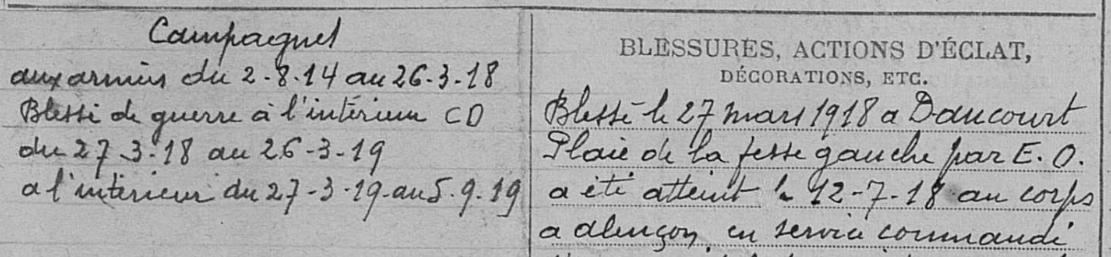 Campagnes
aux armées du 2-8-14 au 26-3-18
Blessé de guerre à l'intérieur CD
du 27-3-18 au 26-3-19
a l'intérieur du 27-3-19 au 5-9-19
BLESSURES, ACTIONS D'ÉCLAT,
DÉCORATIONS, ETC.
Blessé le 27 mars 1918 a Dancourt
Plaie de la fesse gauche par E. O.
a été atteint le 12-7-18 au corps
a alençon, en service commandé